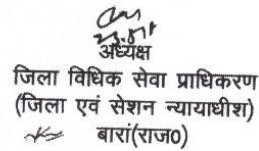 अध्यक्ष
जिला विधिक सेवा प्राधिकरण
(जिला एवं सेशन न्यायाधीश)
बारां(राज0)